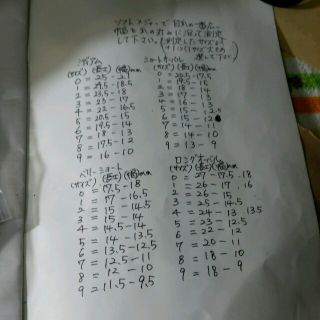 ソフトメジャーで 爪の一番広い
幅を爪の丸みに沿って測定
して下さい。(測定したサイズより
選んで下さい)
ミディアム
(サイズ)(長さ)(幅)mm
1 = 24.5 - 18.5
2 = 23.5 - 18
3 = 23 - 17
4 = 22 - 16.5
5 = 20.5 - 15
6 = 19.5 - 14
7 = 18 - 13
8 = 17.5 - 12
9 = 16 - 10
ショートオーバル
(サイズ)(長さ)(幅)mm
0 = 20.5 - 17.5
1 = 19.5 - 15
2 = 18 - 15
3 = 17 - 14
4 = 16 - 13
6 = 15 - 12
7 = 14 - 11
8 = 14 - 10
9 = 13 - 9
ベリーショート
(サイズ)(長さ)(幅)mm
0 = 17.5 - 18
1 = 17 - 16.5
2 = 15 - 14.5
3 = 15 - 14
4 = 14.5 - 14
5 = 14 - 13.5
6 = 13.5 - 12.5
7 = 12.5 - 11
8 = 12 - 10
9 = 11.5 - 9.5
ロングオーバル
(サイズ)(長さ)(幅)mm
0 = 27 - 17.5 18
1 = 26 - 17 16
2 = 26 - 15
3 = 25 - 14.5
4 = 24 - 13 13.5
5 = 23 - 12.5
6 = 22 - 12
7 = 20 - 11
8 = 18 - 10
9 = 18 - 9